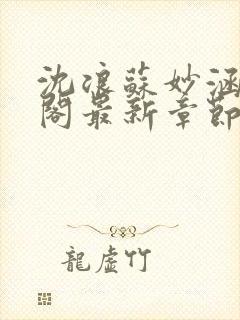 沈浪蘇妙涵
閣最新章節
龍虛竹